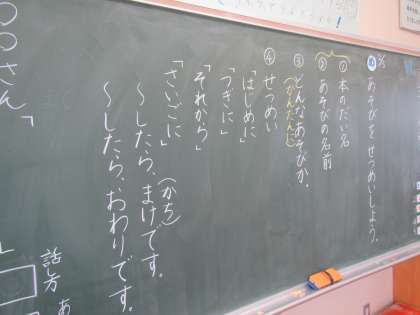 あそびを せつめいしよう。
① 本のだい名
② あそびの名前
③ どんなあそびか。
(かんたんに)
④ せつめい
「はじめに」
「つぎに」
「それから」
「さいごに」
〜したら、まけです。
(かち)
〜したら、おわりです。
〇〇さん」
話し方